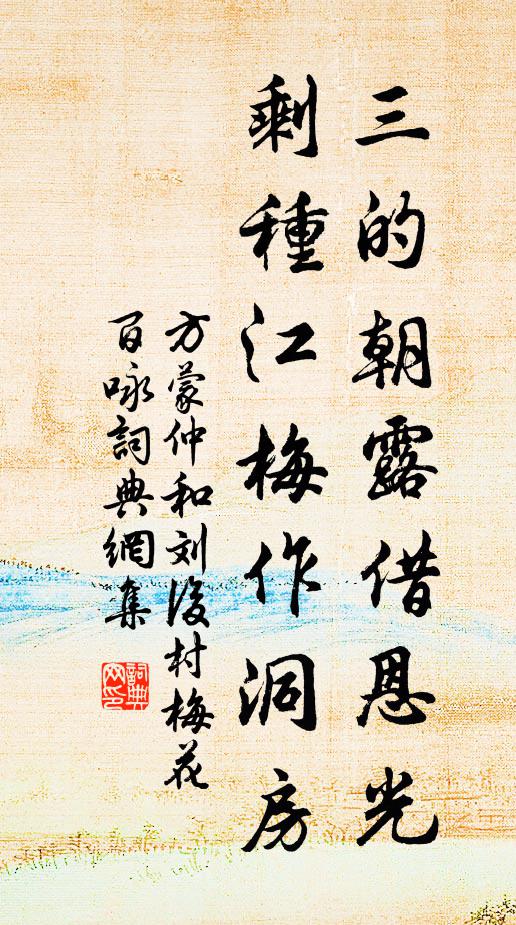 三的朝露借恩光
剩種江梅作洞房
方蒙仲和刘後村梅花
百咏詞典網集
詞典